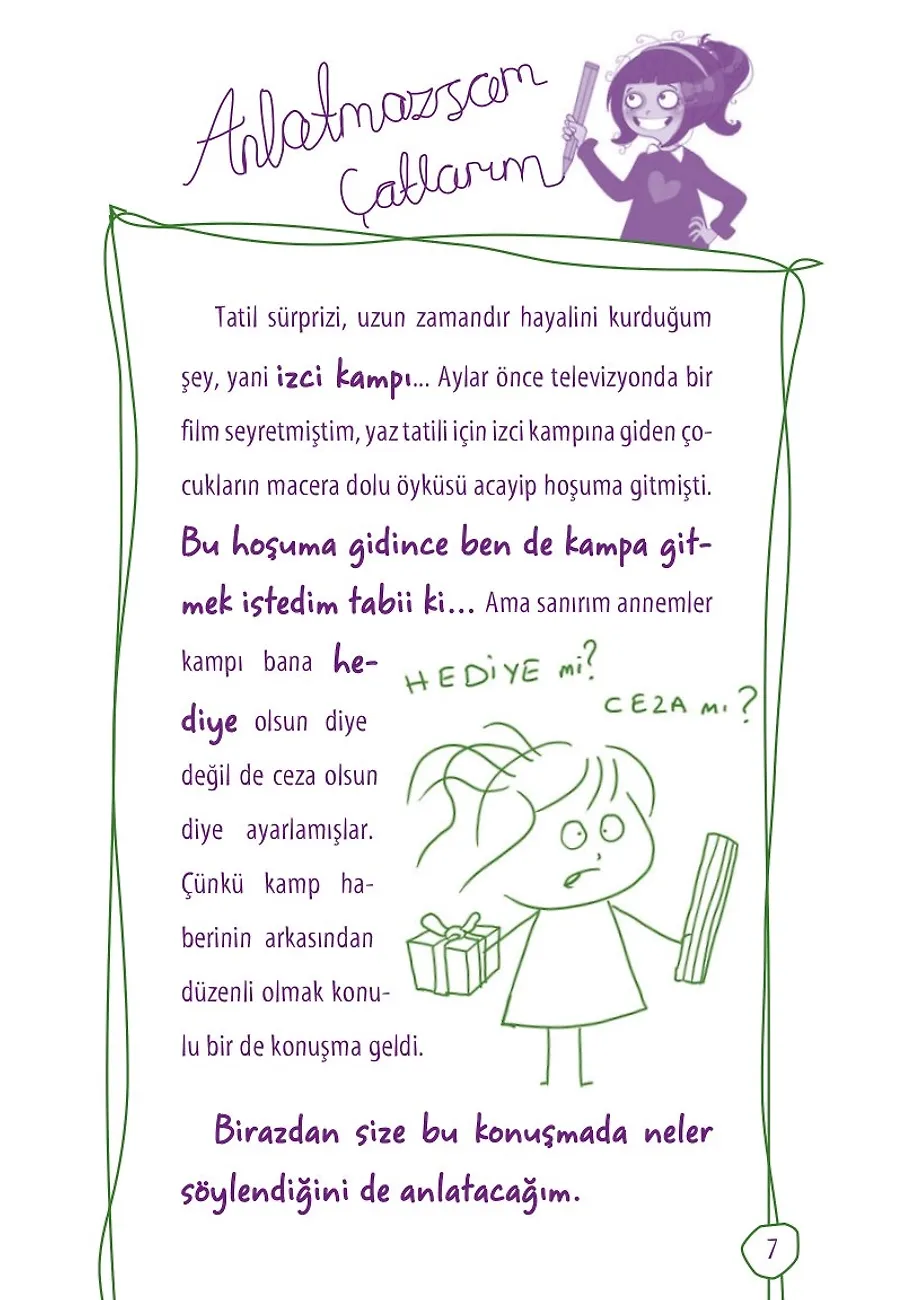 Anlatmazsam
Çatlarım
Tatil sürprizi, uzun zamandır hayalini kurduğum
şey, yani izci kampı... Aylar önce televizyonda bir
film seyretmiştim, yaz tatili için izci kampına giden ço-
cukların macera dolu öyküsü acayip hoşuma gitmişti.
Bu hoşuma gidince ben de kampa git-
mek istedim tabii ki... Ama sanırım annemler
kampı bana he-
diye olsun diye
değil de ceza olsun
diye ayarlamışlar.
Çünkü kamp ha-
berinin arkasından
düzenli olmak konu-
lu bir de konuşma geldi.
HEDİYE mi?
CEZA mı?
Birazdan size bu konuşmada neler
söylendiğini de anlatacağım.
7